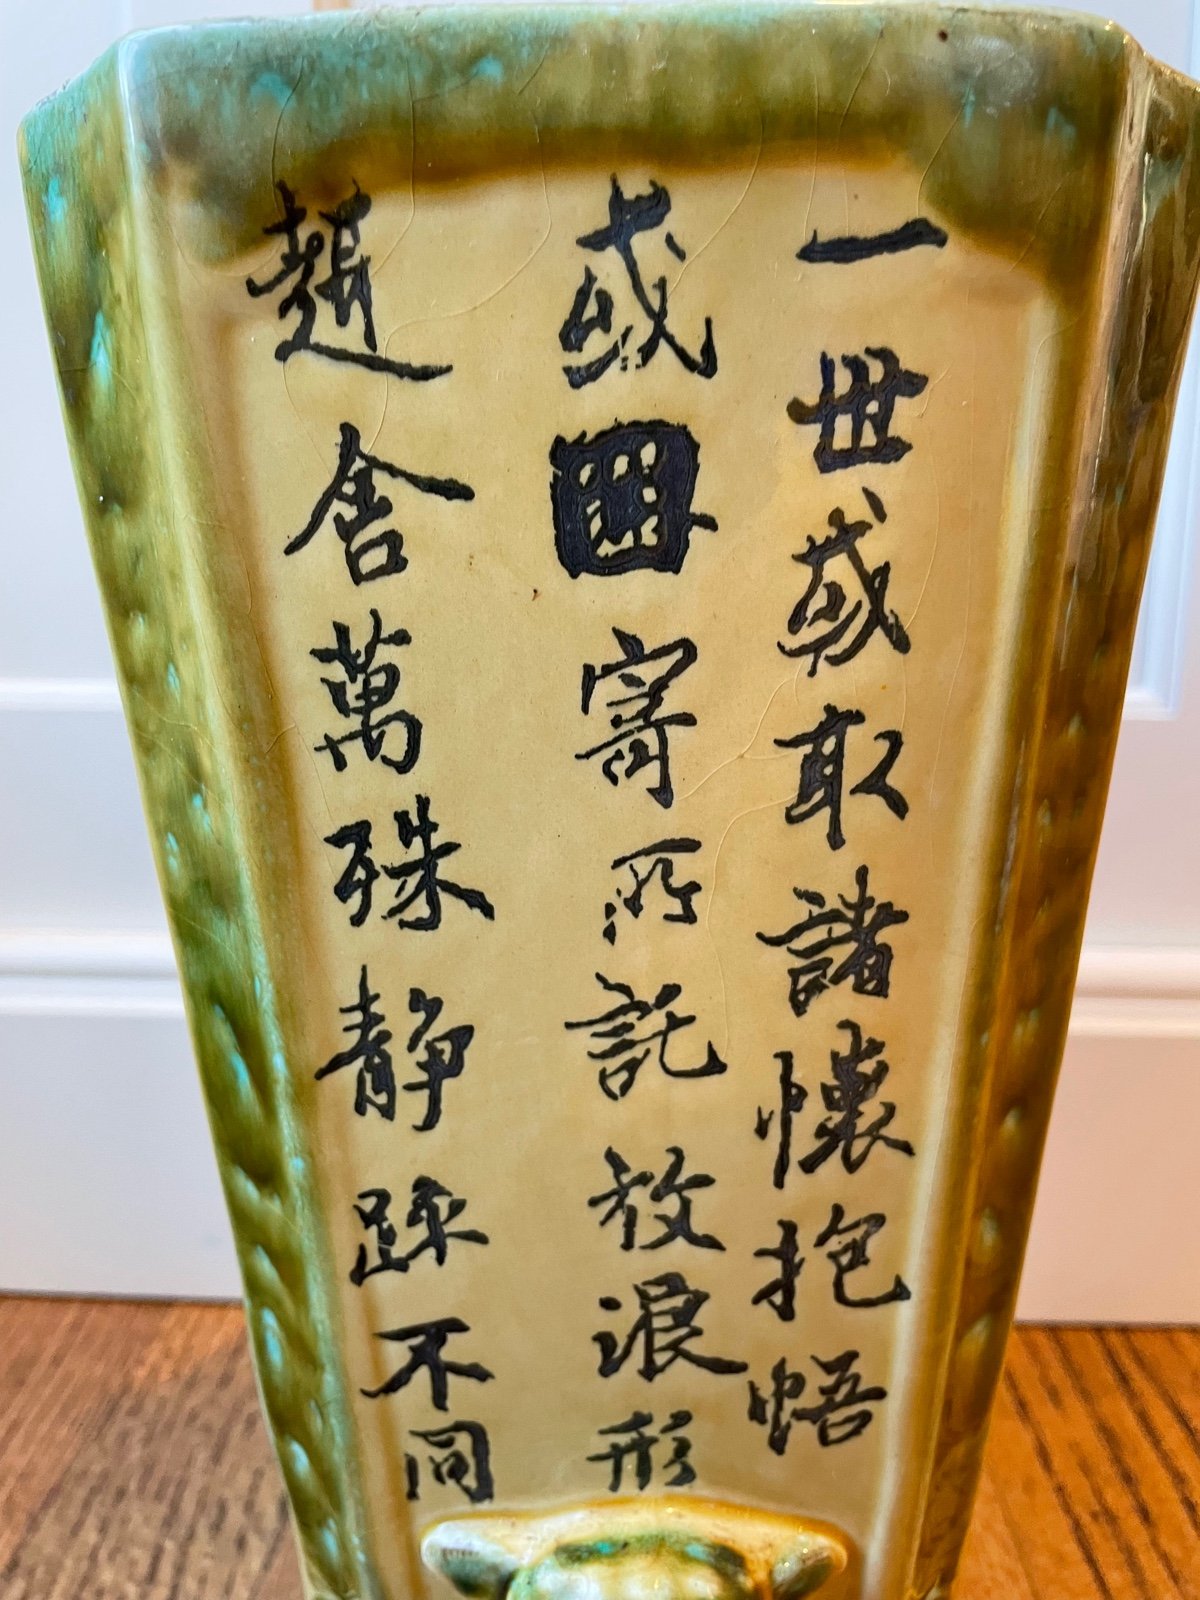 一世或取諸懷抱悟
或因寄所託放浪形
趣舍萬殊静躁不同